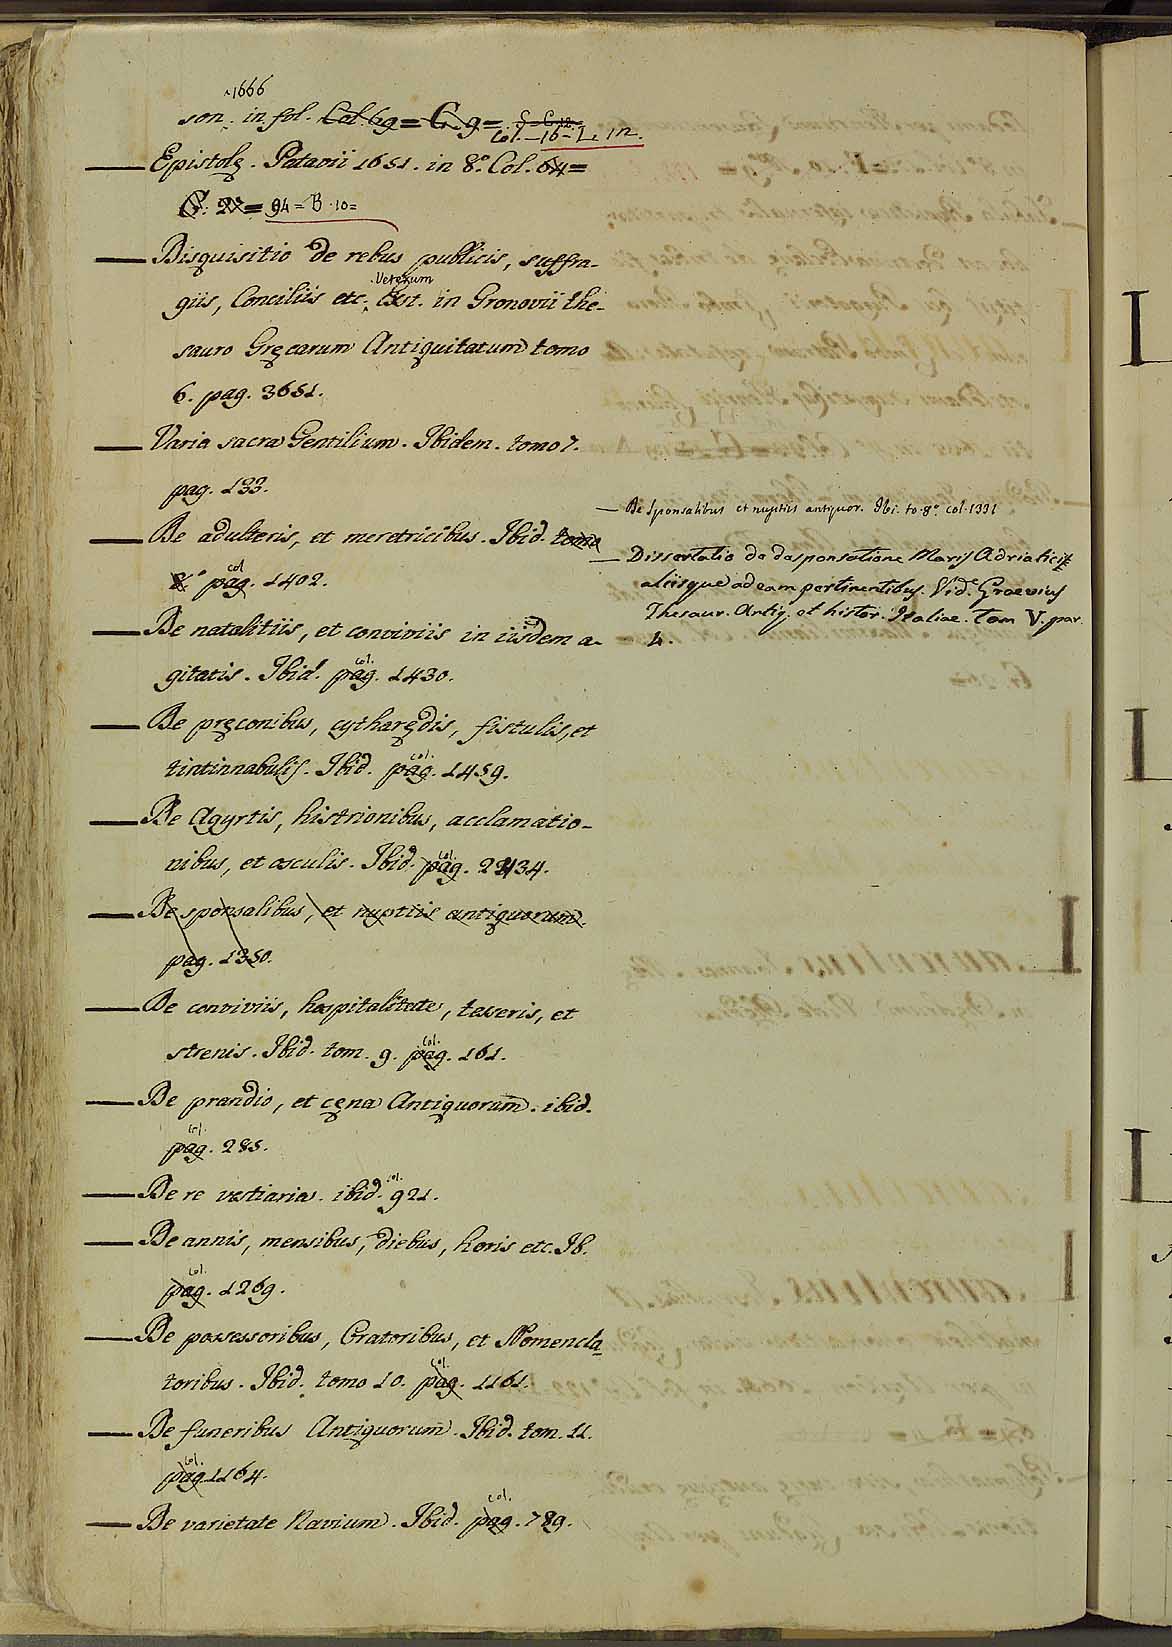 1666
son. in fol. Col. 69 = G. 9 =
Col. 16 = L. 12.
— Epistolę. Patavii 1651. in 8.° Col. 64 =
G. 2 = 94 = B. 10 =
— Disquisitio de rebus publicis, suffra-
Veterum
giis, Conciliis etc. Ext. in Gronovii the-
sauro Gręcarum Antiquitatum tomo
6. pag. 3651.
— Varia sacra Gentilium. Ibidem. tomo 7.
pag. 133.
— De adulteris, et meretricibus. Ibid. tomo
8.° pag. col 1402.
— De natalitiis, et conviviis in iisdem a-
gitatis. Ibid. pag. col. 1430.
— De pręconibus, cytharędis, fistulis, et
tintinnabulis. Ibid. pag. col. 1459.
— De Agyrtis, histrionibus, acclamatio-
nibus, et osculis. Ibid. pag. col. 22434.
— De sponsalibus, et nuptiis antiquorum.
pag. 1350.
— De conviviis, hospitalitate, tesseris, et
strenis. Ibid. tom. 9. pag. col. 161.
— De prandio, et cęna Antiquorum. ibid.
pag. col. 285.
— De re vestiaria. ibid. col. 921.
— De annis, mensibus, diebus, horis etc. Ib.
pag. col. 1269.
— De possessoribus, Oratoribus, et Nomencla-
toribus. Ibid. tomo 10. pag. col. 1161.
— De funeribus Antiquorum. Ibid. tom. 11.
pag. col. 1164.
— De varietate Navium. Ibid. pag. col. 789.
— De Sponsalibus et nuptiis antiquor. Ibi. to. 8.° col. 1331
— Dissertatio de dasponsatione Maris Adriatici
aliisque ad eam pertinentibus. Vid.e Graevius
Thesaur. Antiq. et histor. Italiae. tom V. par.
4.